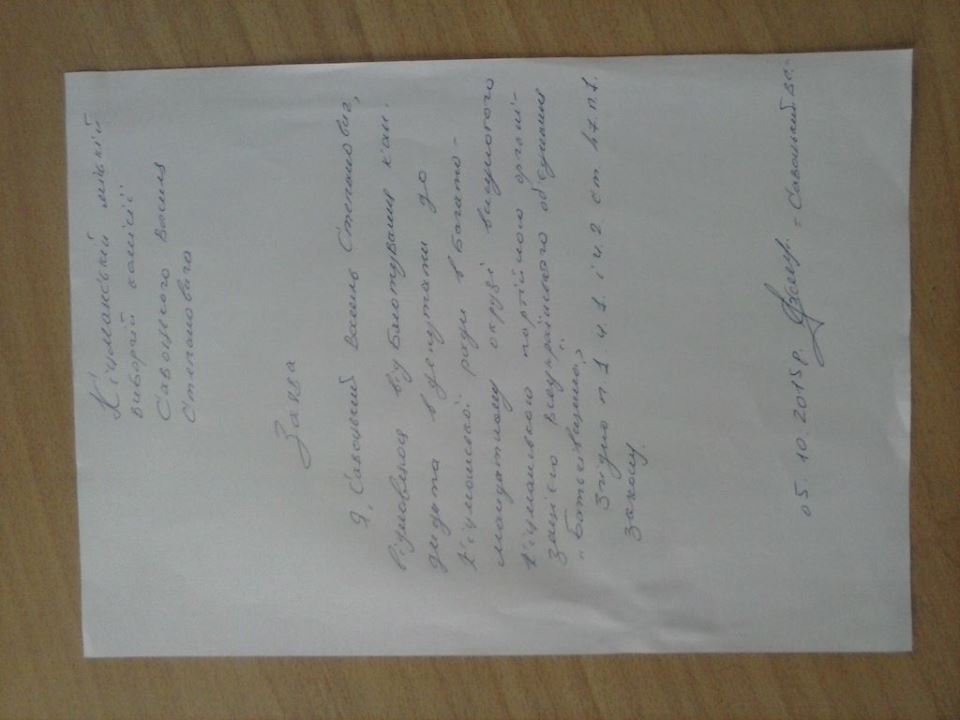 Кіцманській міській
виборчій комісії
Савоцького Василя
Степановича
Заява
Я, Савоцький Василь Степанович,
відмовляюся від балотування кан-
дидата в депутати до
Кіцманської ради в багато-
мандатному окрузі висунутого
Кіцманського партійного органі-
зацією всеукраїнського об'єднання
„Батьківщина"
Згідно п.1 ч.1. і ч.2. ст. 47.п.1.
закону
05.10.2015р. - Савоцький Ва-